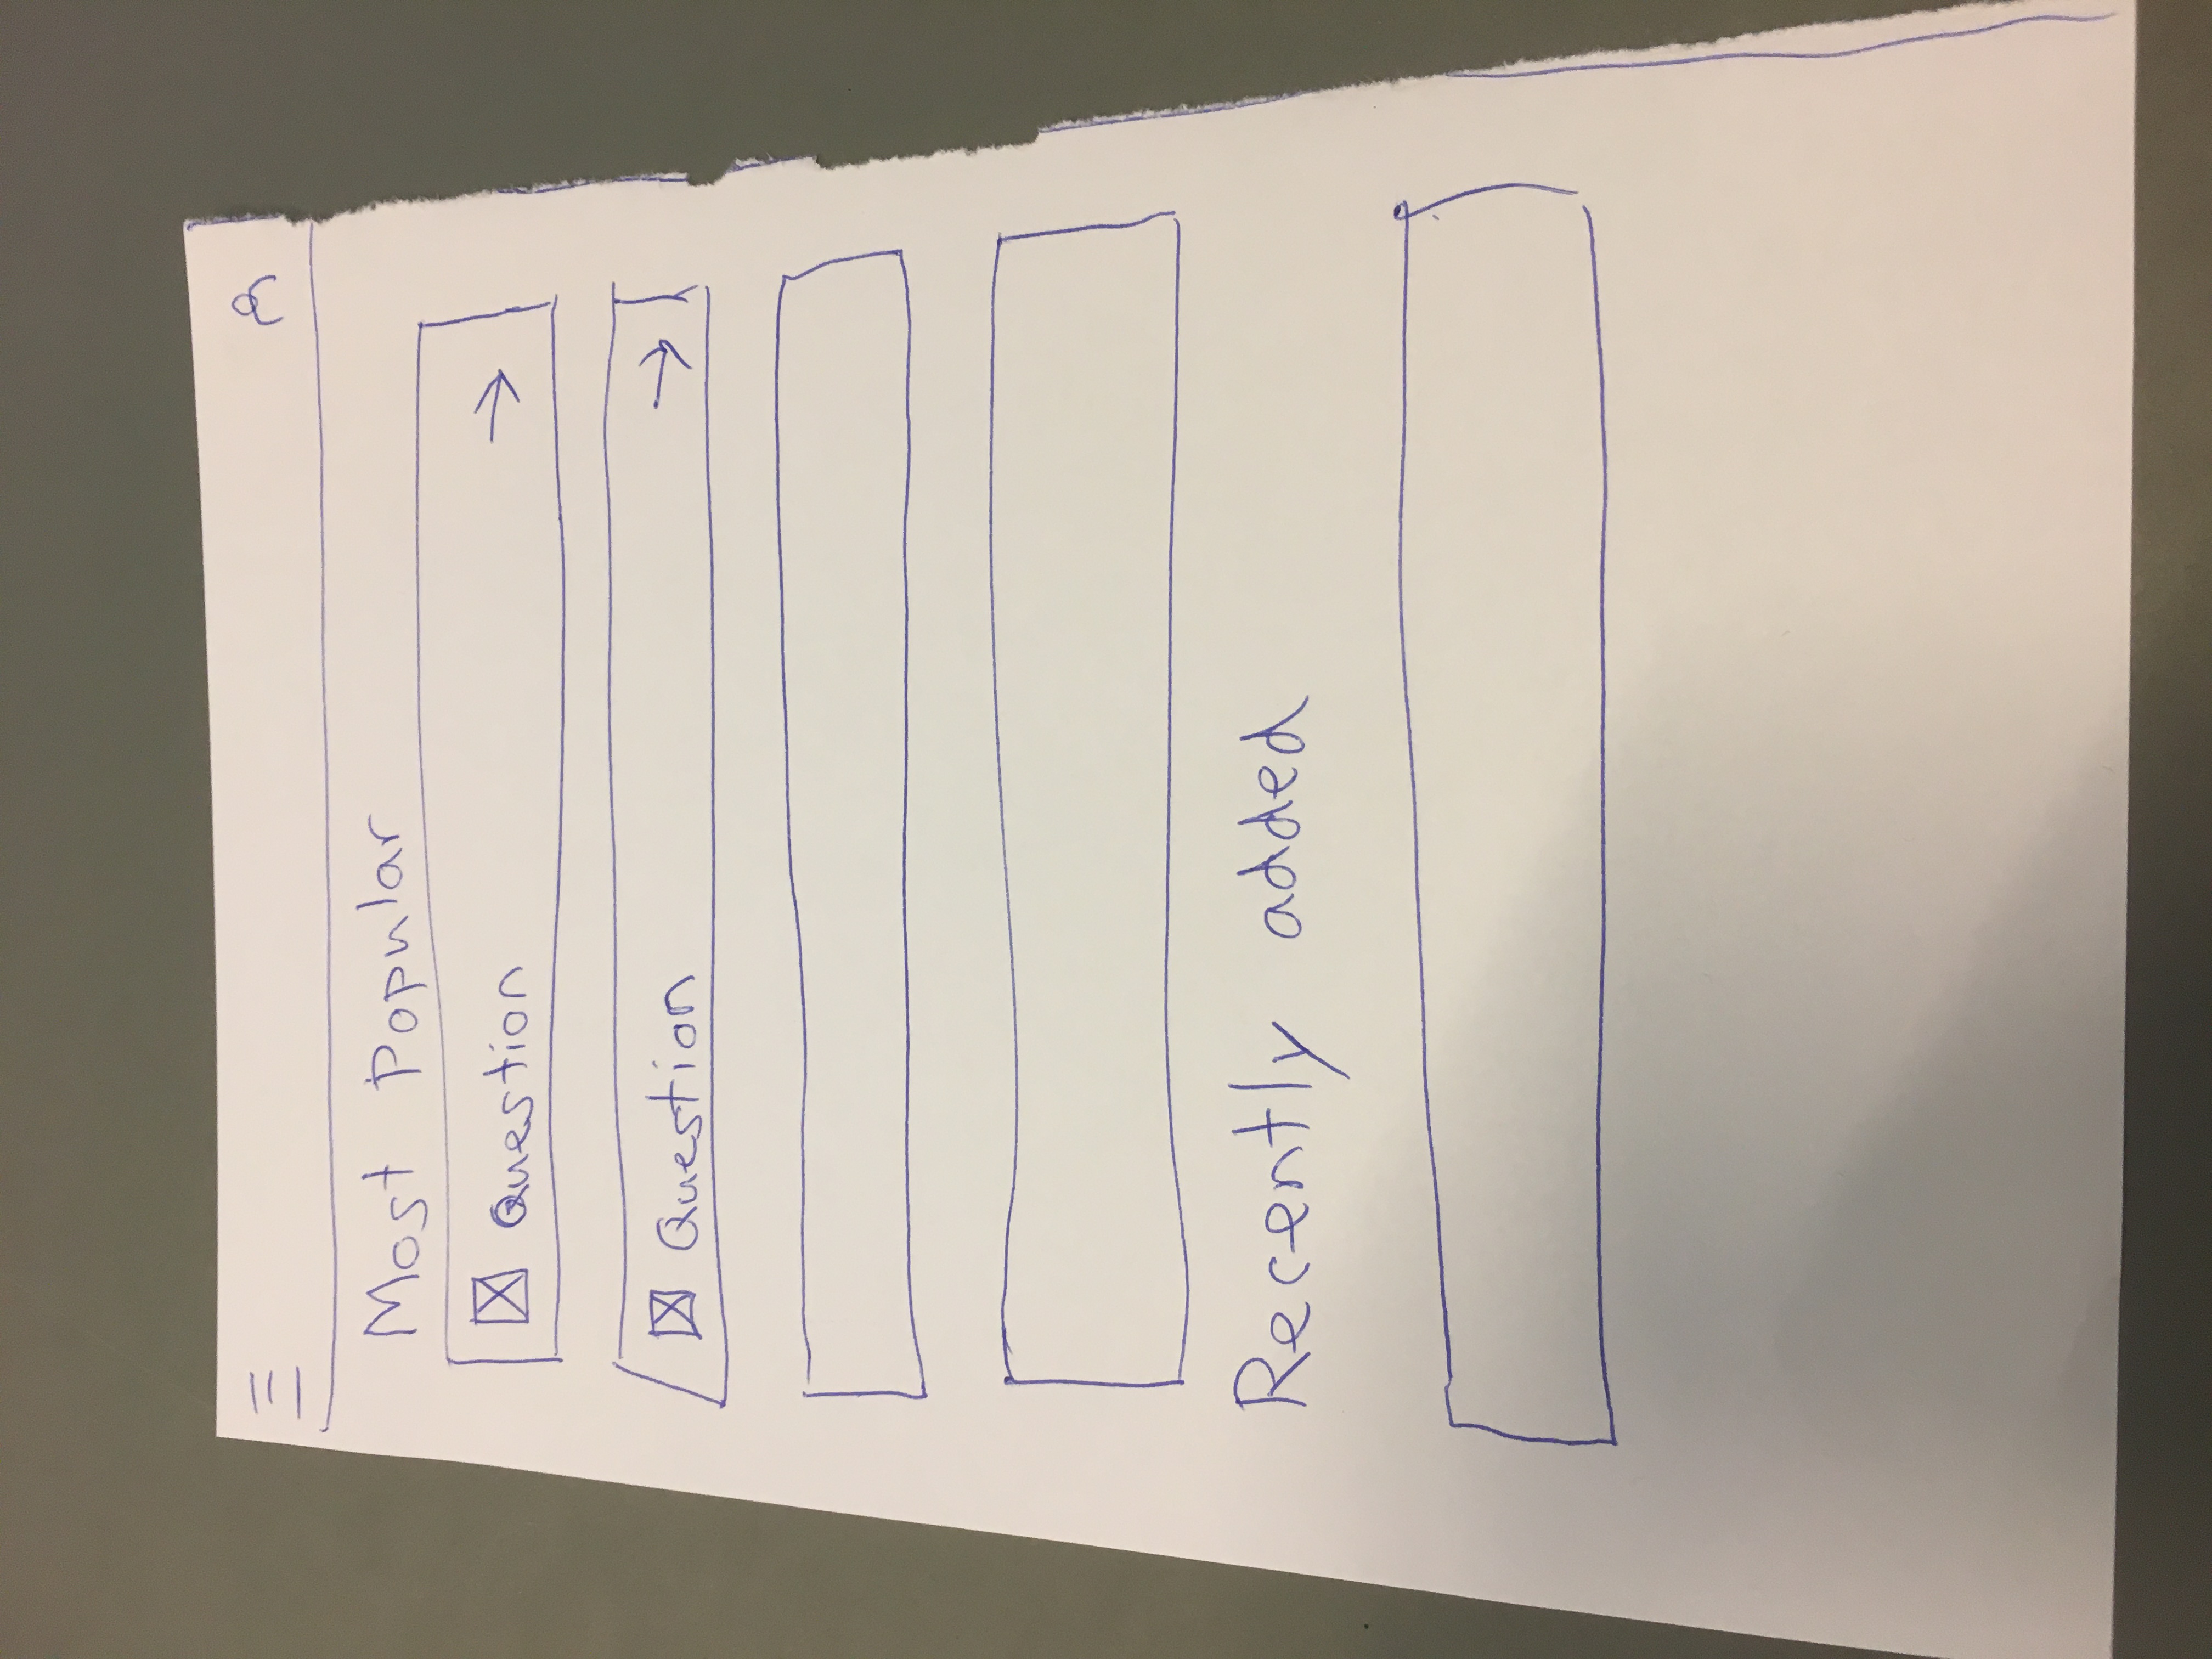 Most Popular
Question
Question
Recently added